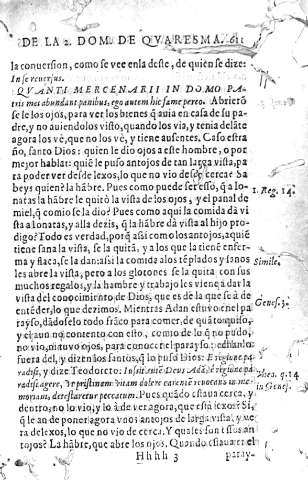 DE LA 2. DOM. DE QVARESMA. 611
la conuersion, como se vee enla deste, de quien se dize:
In se reuersus.
QVANTI MERCENARII IN DOMO PA-
tris mei abundant panibus, ego autem hic fame pereo. Abriero
se le los ojos, para ver los bienes q̃ auia en casa de su pa-
dre, y no auiendolos visto, quando los via, y tenia delãte
agora los vè, que no los vè, y tiene ausentes. Caso estra
ño, santo Dios: quien le dio ojos a este hombre, o por
mejor hablar: quiẽ le puso antojos de tan larga vista, pa
ra poder ver desde lexos, lo que no vio desde cerca? Sa
beys quien? la hãbre. Pues como puede ser esso, q̃ a Io-
natas la hãbre le quitò la vista de los ojos, y el panal de
miel, q̃ comio se la dio? Pues como aqui la comida dà vi
sta a Ionatas, y alla dezis, q̃ la hãbre dà vista al hijo pro-
digo? Todo es verdad, porq̃ assi como los antojos, aquiẽ
tiene sana la vista, se la quitã, y a los que la tienẽ enfer-
ma y flaca, se la dan: assi la comida a los tẽplados y sanos
les abre la vista, pero a los glotones se la quita con sus
muchos regalos, y la hambre y trabajo les viene a dar la
vista del conocimiento de Dios, que es de la que se à de
entẽder, lo que dezimos. Mientras Adan estuvo en el pa
rayso, dãdoselo todo frãco para comer, de quãto queria,
y el aun no contento con esto, como de lo q̃ no pudo,
no vio, ni tuvo ojos, para conocer el parayso: echãnlos
fuera del, y dizẽ nos santos, q̃ lo puso Dios: E regione pa
radisi, y dize Teodoreto: Iussit autẽ Deus Adã, è regione pa-
radisi agere, vt pristinam vitam dolore carentẽ reuocans in me-
moriam, detestaretur peccatum. Pues quãdo estaua cerca, y
dentro, no lo vio, y lo à de ver agora, que està lexos? Si,
q̃ le an de poner agora vnos antojos de larga vista, y ve
ra de lexos, lo que no vio de cerca. Y quales son essos an
tojos? La hãbre, que abre los ojos. Quando estaua en el
Hhhh 3 paray-
1. Reg. 14.
Simile.
Genes. 3.
q. 14
in Genes.